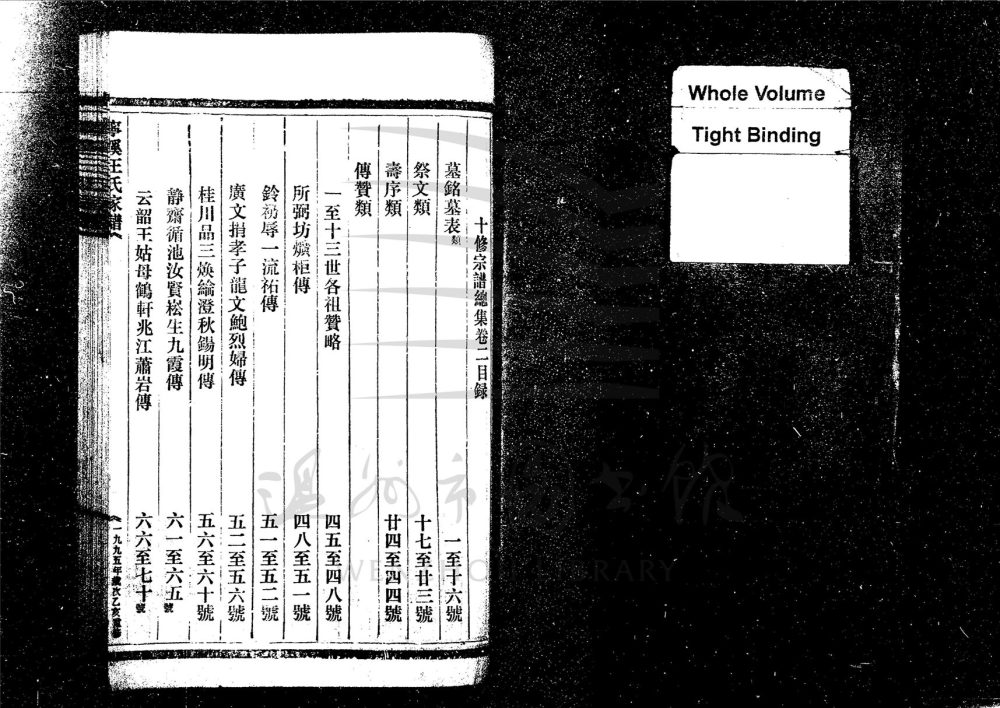 十修宗譜總集卷二目録
墓銘墓表類 一至十六號
祭文類 十七至廿三號
壽序類 廿四至四四號
傳贊類
一至十三世各祖贊略 四五至四八號
所弼坊熿柜傳 四八至五一號
鈴 辱一流祐傳 五一至五二號
廣文捐孝子龍文鮑烈婦傳 五二至五六號
桂川品三煥綸澄秋鍚明傳 五六至六十號
静齋循池汝賢松生九霞傳 六一至六五號
云韶王姑母鶴軒兆江蕭岩傳 六六至七十號
寧溪王氏家譜
一九九五年歲次乙亥重修
Whole Volume
Tight Binding
溫州市圖書館
WENZHOU LIBRARY